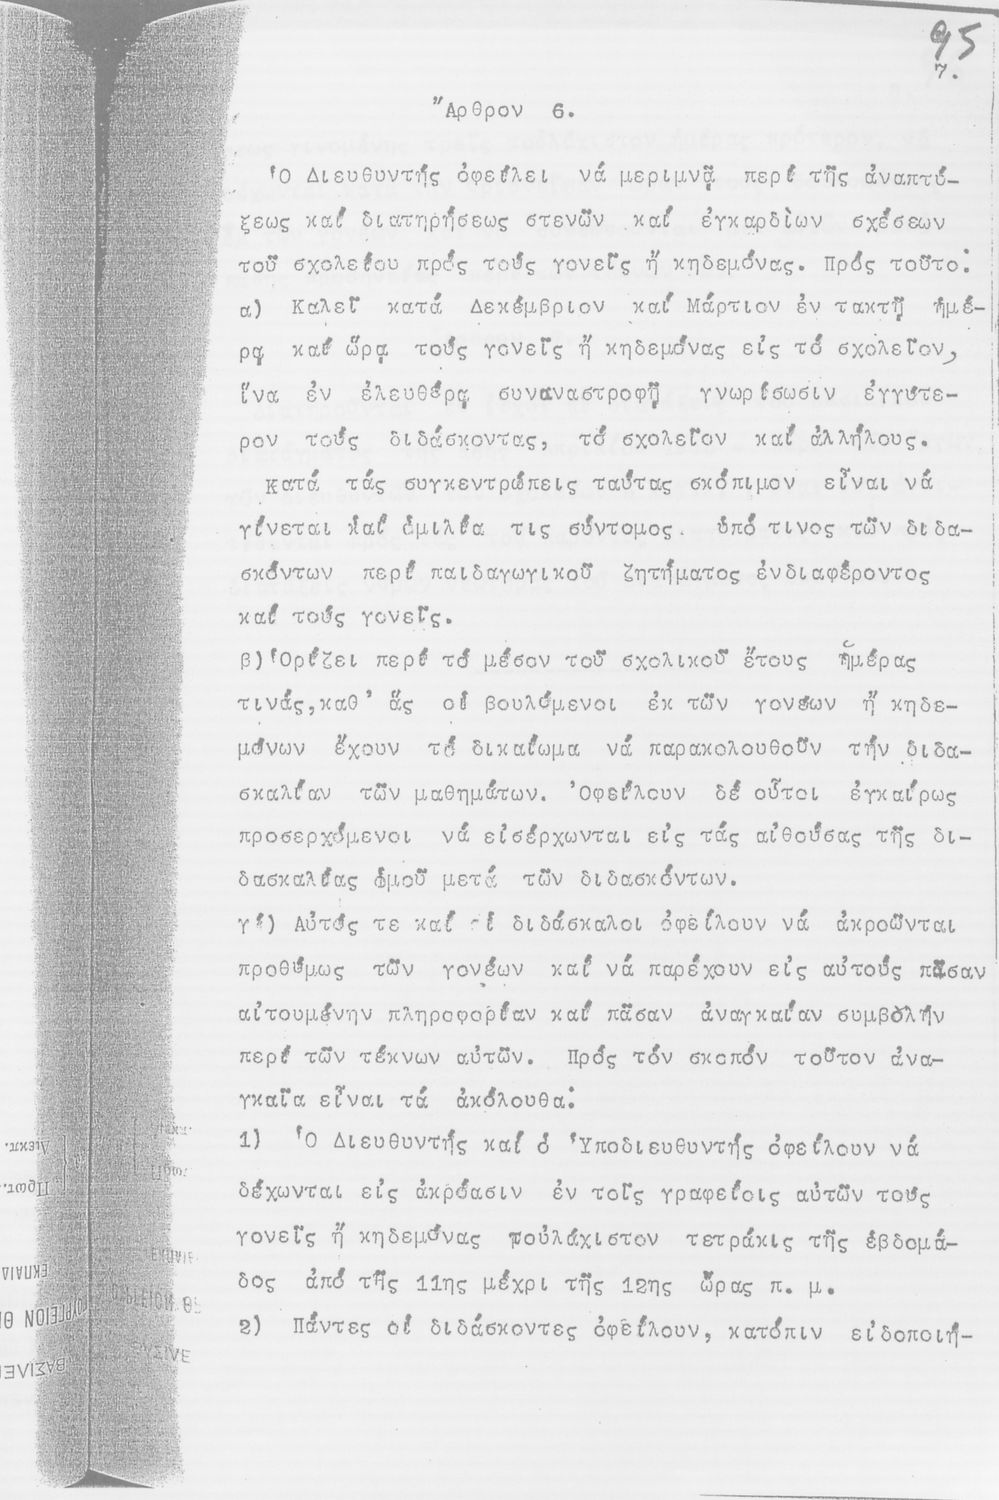 95
7.
Ἄρθρον 6.
Ὁ Διευθυντής ὀφείλει νά μεριμνᾷ περί τῆς ἀναπτύ-
ξεως καί διατηρήσεως στενῶν καί ἐγκαρδίων σχέσεων
τοῦ σχολείου πρός τούς γονεῖς ἤ κηδεμόνας. Πρός τοῦτο:
α) Καλεῖ κατά Δεκέμβριον καί Μάρτιον ἐν τακτῇ ἡμέ-
ρᾳ καί ὥρᾳ τούς γονεῖς ἤ κηδεμόνας εἰς τό σχολεῖον,
ἵνα ἐν ἐλευθέρᾳ συναναστροφῇ γνωρίσωσιν ἐγγύτε-
ρον τούς διδάσκοντας, τό σχολεῖον καί ἀλλήλους.
Κατά τάς συγκεντρώπεις ταύτας σκόπιμον εἶναι νά
γίνεται καί ὁμιλία τις σύντομος. ὑπό τινος τῶν διδα-
σκόντων περί παιδαγωγικοῦ ζητήματος ἐνδιαφέροντος
καί τούς γονεῖς.
β) Ὁρίζει περί τό μέσον τοῦ σχολικοῦ ἔτους ἡμέρας
τινάς, καθ' ἅς οἱ βουλόμενοι ἐκ τῶν γονέων ἤ κηδε-
μόνων ἔχουν τό δικαίωμα νά παρακολουθοῦν τήν διδα-
σκαλίαν τῶν μαθημάτων. Ὀφείλουν δέ οὗτοι ἐγκαίρως
προσερχόμενοι νά εἰσέρχωνται εἰς τάς αἰθούσας τῆς δι-
δασκαλίας ὁμοῦ μετά τῶν διδασκόντων.
γ) Αὐτός τε καί οἱ διδάσκαλοι ὀφείλουν νά ἀκροῶνται
προθύμως τῶν γονέων καί νά παρέχουν εἰς αὐτούς πᾶσαν
αἰτουμένην πληροφορίαν καί πᾶσαν ἀναγκαίαν συμβολήν
περί τῶν τέκνων αὐτῶν. Πρός τόν σκοπόν τοῦτον ἀνα-
γκαῖα εἶναι τά ἀκόλουθα:
1) Ὁ Διευθυντής καί ὁ Ὑποδιευθυντής ὀφείλουν νά
δέχωνται εἰς ἀκρόασιν ἐν τοῖς γραφείοις αὐτῶν τούς
γονεῖς ἤ κηδεμόνας τοὐλάχιστον τετράκις τῆς ἑβδομά-
δος ἀπό τῆς 11ης μέχρι τῆς 12ης ὥρας π. μ.
2) Πάντες οἱ διδάσκοντες ὀφείλουν, κατόπιν εἰδοποιή-